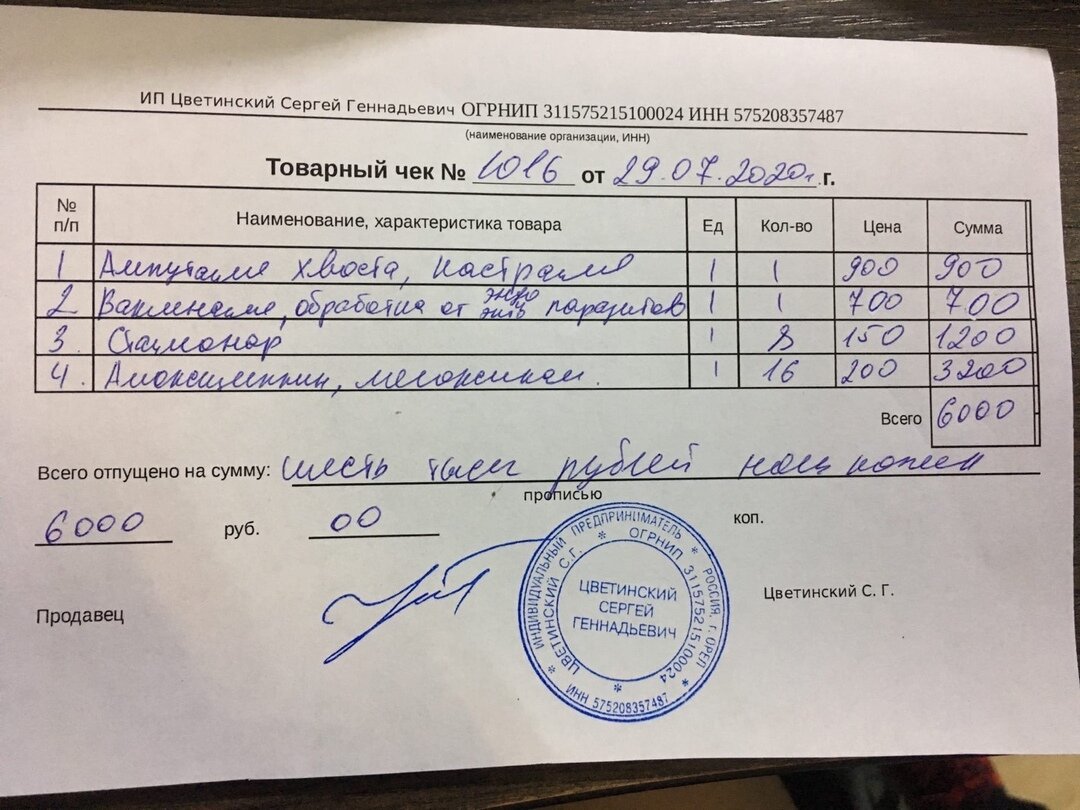 ИП Цветинский Сергей Геннадьевич ОГРНИП 311575215100024 ИНН 575208357487
(наименование организации, ИНН)
Товарный чек № 1016 от 29.07.2020г. г.
№ п/п Наименование, характеристика товара Ед Кол-во Цена Сумма
1 Ампутация хвоста, кастрация 1 1 900 900
2 Вакцинация, обработка от экто энто паразитов 1 1 700 700
3. Стационар 1 8 150 1200
4. Амоксициллин, мелоксикам. 1 16 200 3200
Всего 6000
Всего отпущено на сумму: шесть тысяч рублей ноль копеек
прописью
6000 руб. 00 коп.
Продавец Цветинский С. Г.
ИНДИВИДУАЛЬНЫЙ ПРЕДПРИНИМАТЕЛЬ * РОССИЯ г. ОРЕЛ * ИНН 575208357487 *
ЦВЕТИНСКИЙ С.Г. * ОГРНИП 311575215100024 *
ЦВЕТИНСКИЙ
СЕРГЕЙ
ГЕННАДЬЕВИЧ